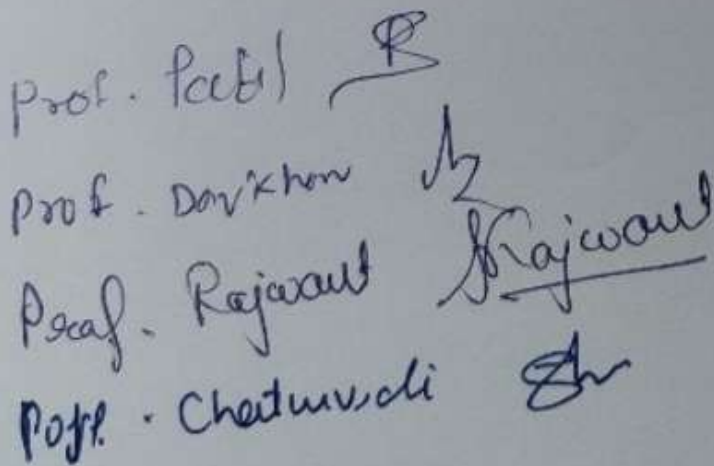 Prof. Patil
Prof. Darkhon
Prof. Rajwant Rajwant
Poff. Chaturvedi